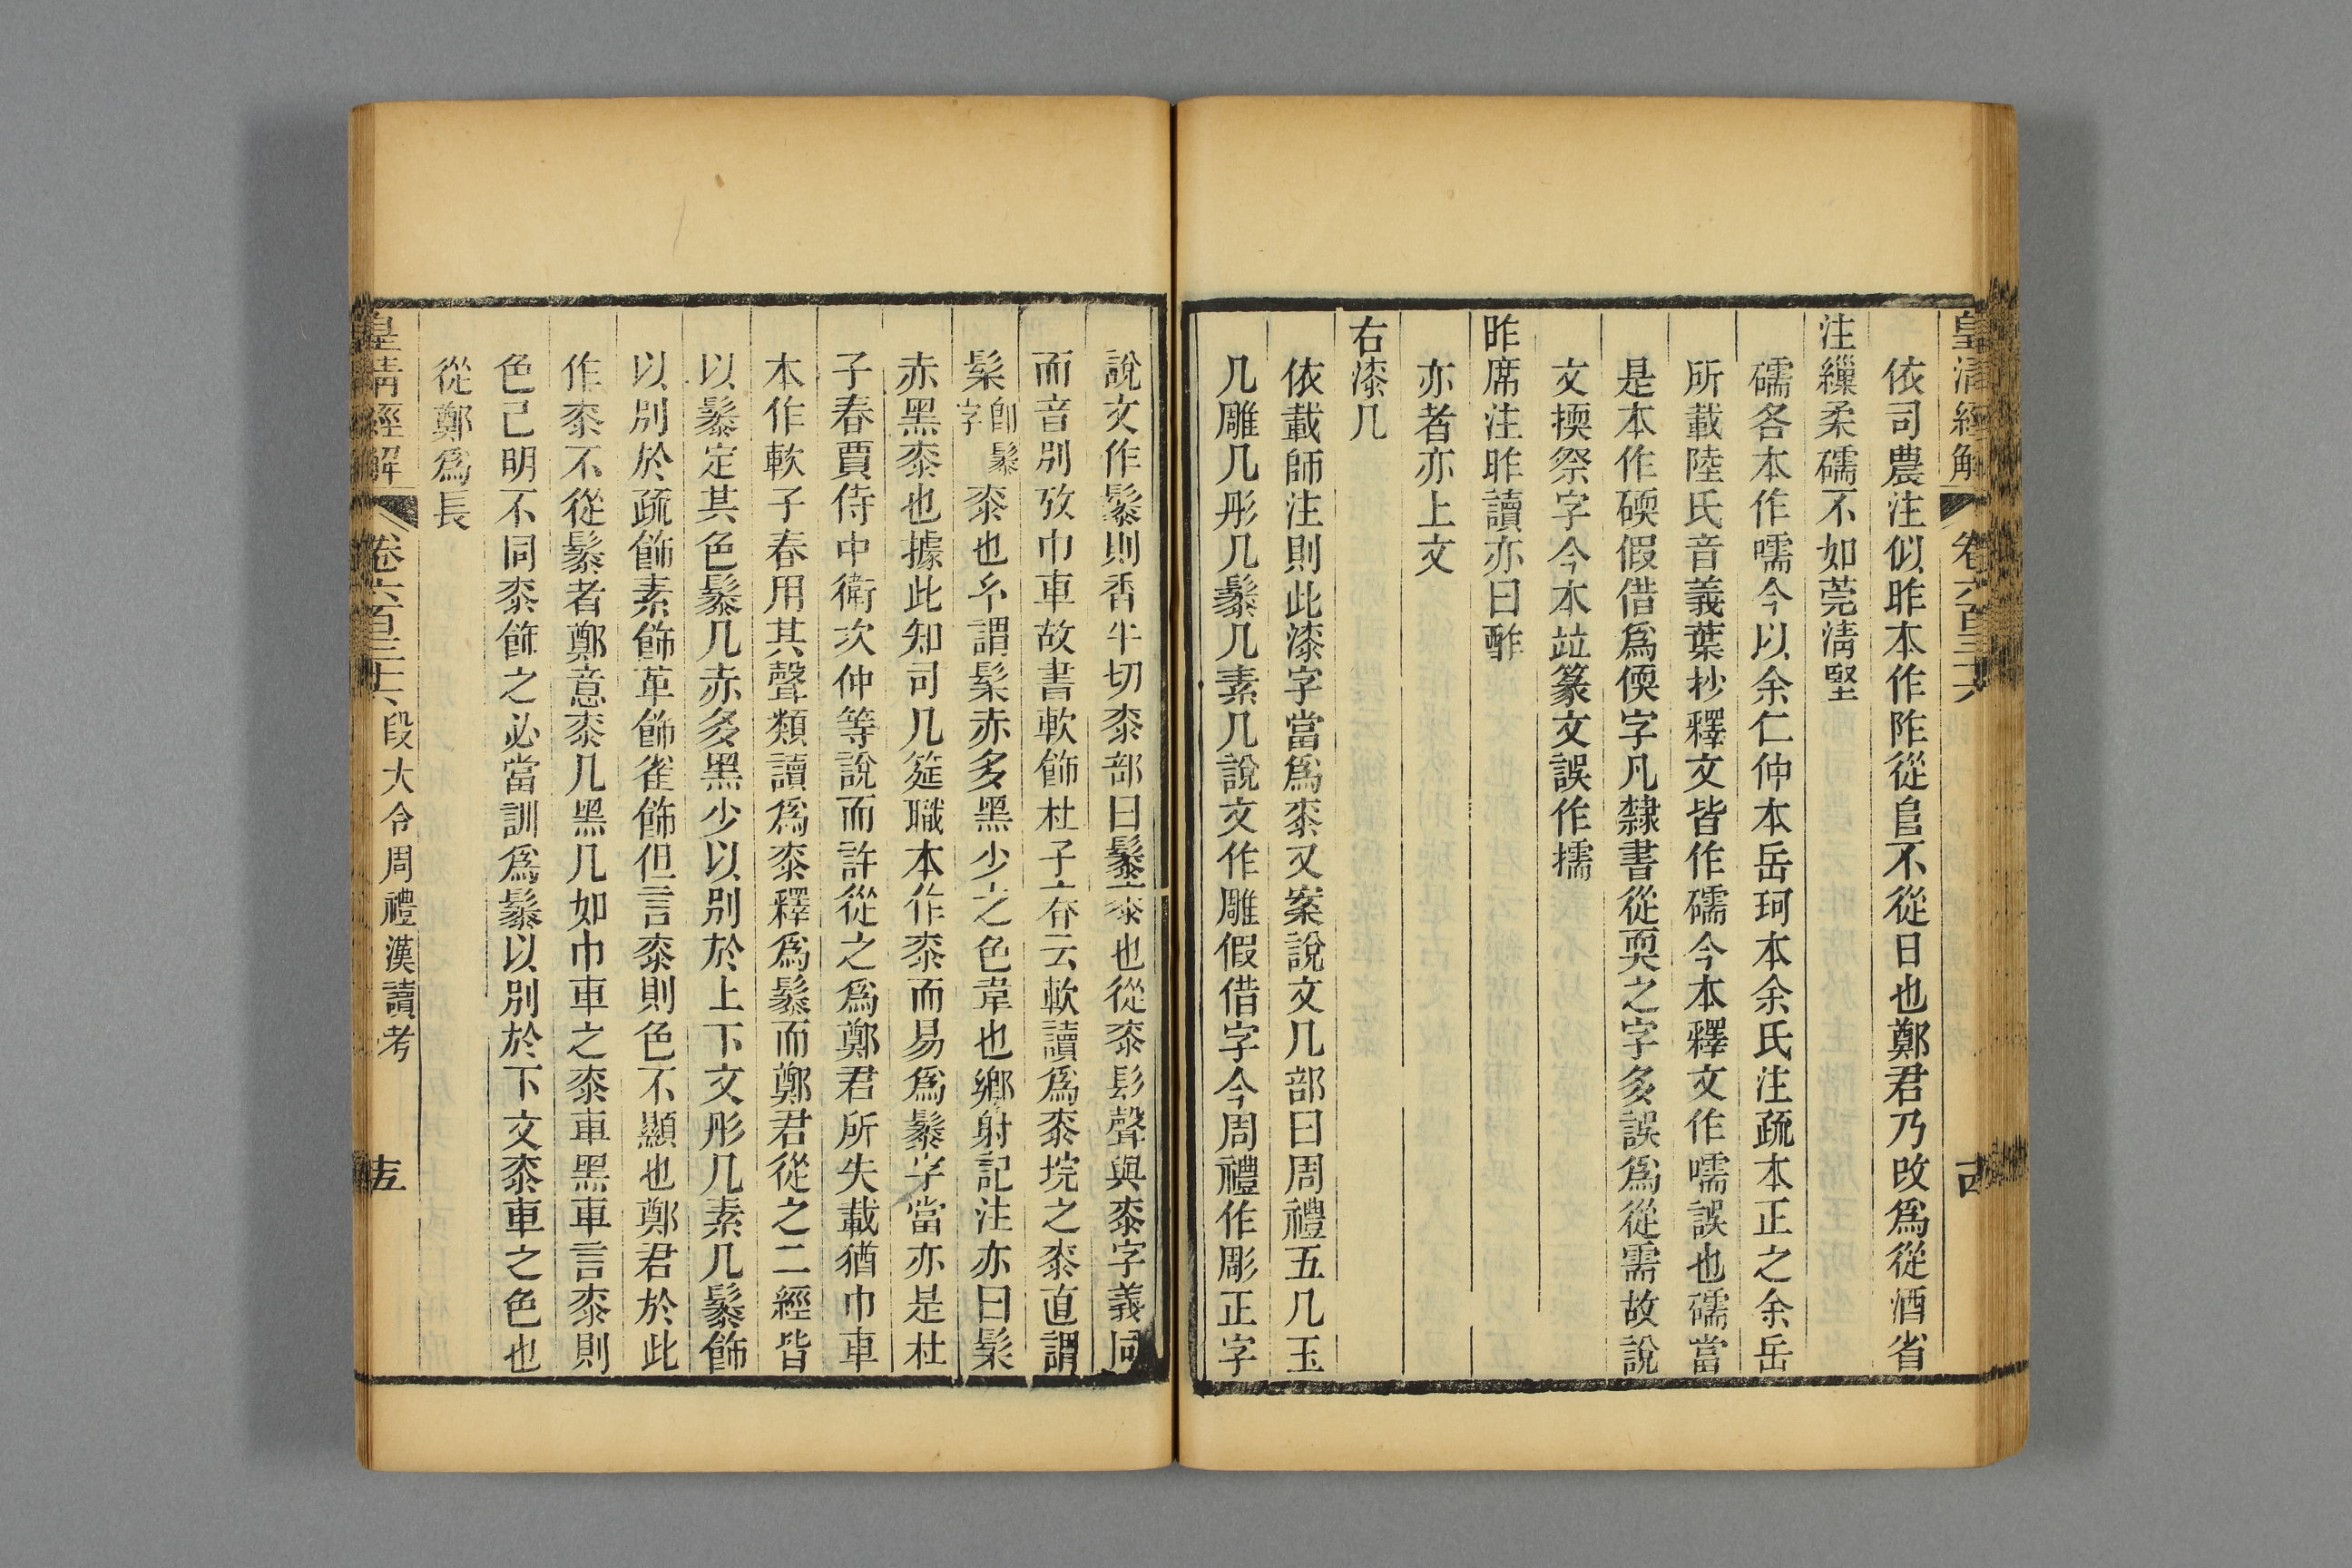 皇清經解 卷六百三十六 古
依司農注似昨本作阼從𨸏不從日也鄭君乃改爲從酒省
注繅柔礝不如莞淸堅
礝各本作嚅今以余仁仲本岳珂本余氏注疏本正之余岳
所載陸氏音義葉抄釋文皆作礝今本釋文作嚅誤也礝當
是本作碝假借爲偄字凡隸書從耎之字多誤爲從需故說
文擩祭字今本竝篆文誤作擩
昨席注昨讀亦曰酢
亦者亦上文
右漆几
依載師注則此漆字當爲桼又案說文几部曰周禮五几玉
几雕几彤几鬃几素几說文作雕假借字今周禮作彫正字
說文作鬃則香牛切桼部曰鬃桼也從桼髟聲與桼字義同
而音別攷巾車故書軟飾杜子春云軟讀爲桼垸之桼直謂
髤卽鬃字桼也𤣥謂髤赤多黑少之色韋也鄉射記注亦曰髤
赤黑桼也據此知司几筵職本作桼而易爲鬃字當亦是杜
子春賈侍中衛次仲等說而許從之爲鄭君所失載猶巾車
本作軟子春用其聲類讀爲桼釋爲鬃而鄭君從之二經皆
以鬃定其色鬃几赤多黑少以別於上下文彤几素几鬃飾
以別於疏飾素飾革飾雀飾但言桼則色不顯也鄭君於此
作桼不從鬃者鄭意桼几黑几如巾車之桼車黑車言桼則
色已明不同桼飾之必當訓爲鬃以別於下文桼車之色也
從鄭爲長
皇淸經解 卷六百三十六 段大令周禮漢讀考 圭